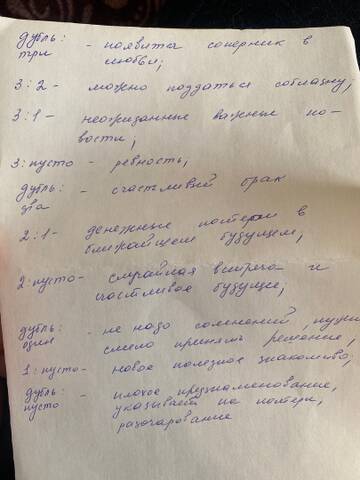 дубль: - появится соперник в
три любви;
3:2 - можно поддаться соблазну;
3:1 - неожиданные важные но-
вости;
3:пусто - ревность;
дубль: - счастливый брак
два
2:1 - денежные потери в
ближайшем будущем;
2:пусто - случайная встреча и
счастливое будущие;
дубль: - не надо сомнений, нужно
один смело принять решение;
1:пусто - новое полезное знакомство;
дубль: - плохое предзнаменование,
пусто указывает на потери,
разочарование